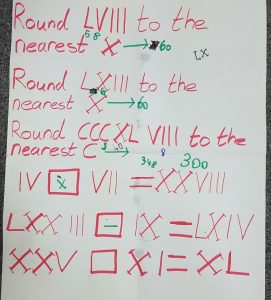 Round LVIII to the
58
nearest X → 60 LX
Round LXIII to the
nearest X → 60
Round CCCXL VIII to the
nearest C 348 300
IV x VII = XXVIII
LXXIII - IX = LXIV
XXV □ XI = XL